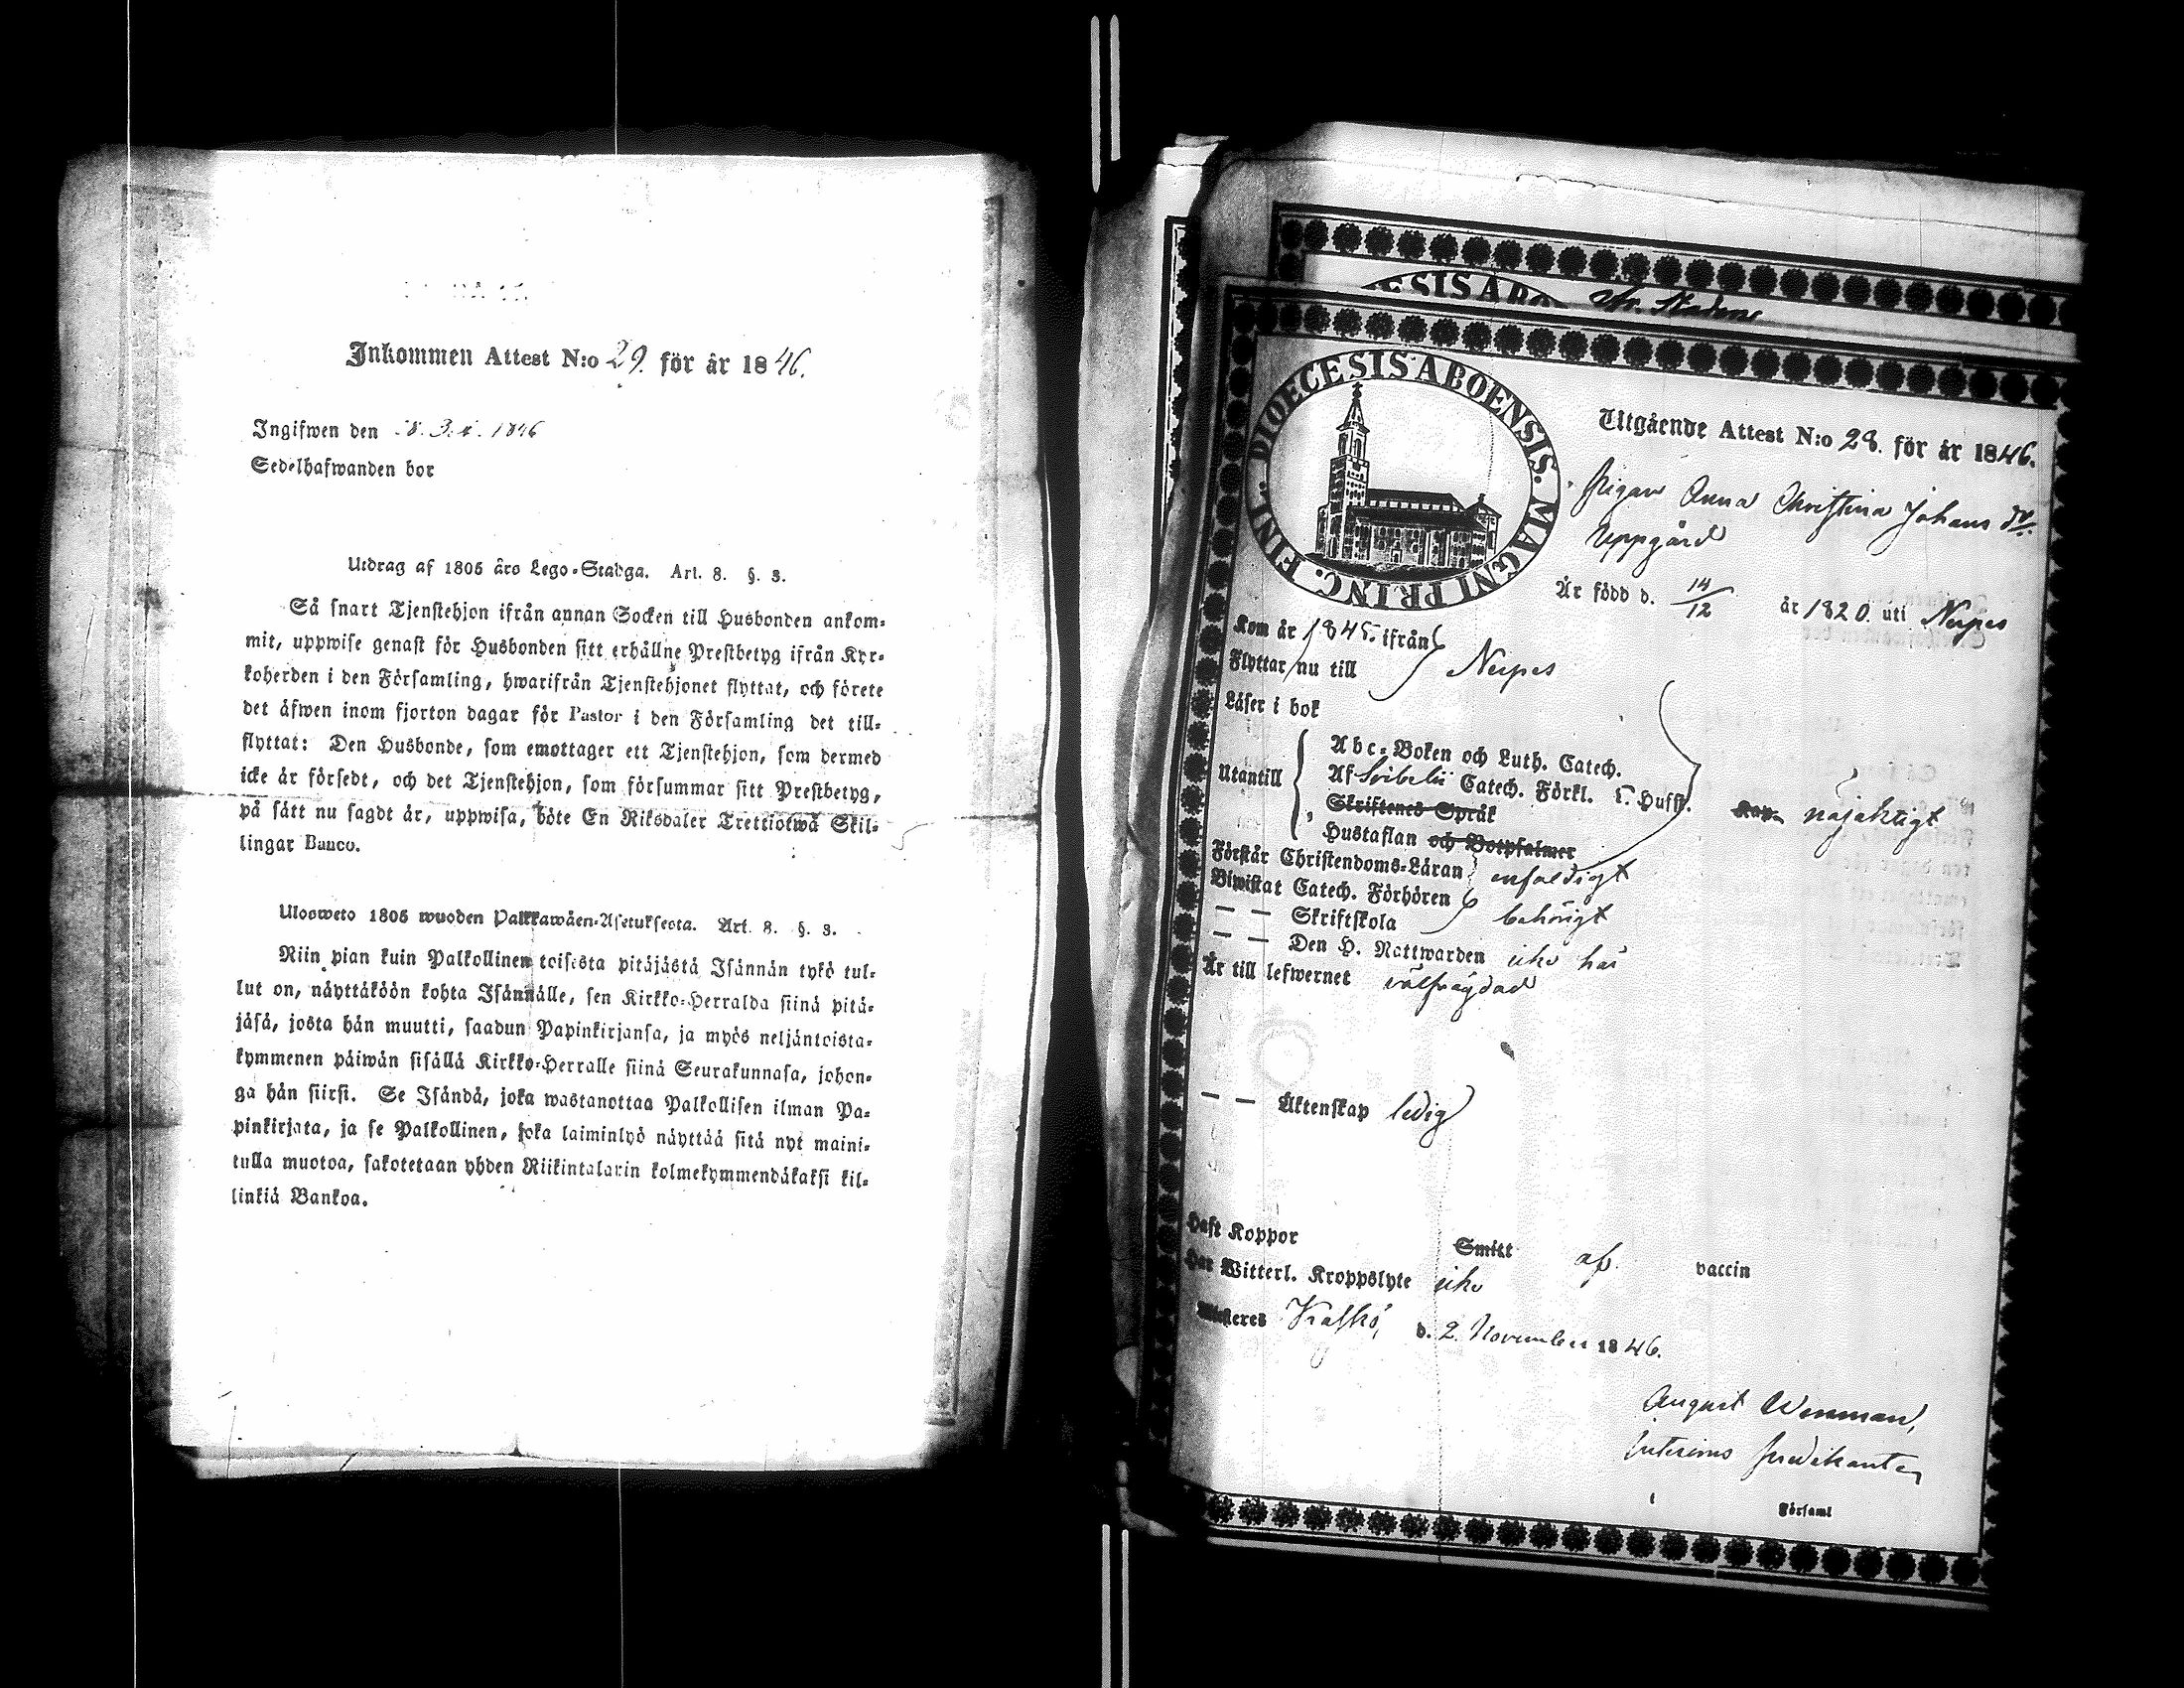 Inkommen Attest N:o 29. för år 1846.
Ingifwen den 1846
Sedelhafwanden bor
Utdrag af 1805 års Lego-Stadga. Art. 8. §. 3.
Så snart Tjenstehjon ifrån annan Socken till Husbonden ankom-
mit, uppwise genast för Husbonden sitt erhållne Prestbetyg ifrån Kyr-
koherden i den Församling, hwarifrån Tjenstehjonet flyttat, och förete
det äfwen inom fjorton dagar för Pastor i den Församling det till-
flyttat: Den Husbonde, som emottager ett Tjenstehjon, som dermed
icke är försedt, och det Tjenstehjon, som försummar sitt Prestbetyg,
på sätt nu sagdt är, uppwisa, böte En Riksdaler Trettiotwå Skil-
lingar Banco.
Ulosweto 1805 wuoden Palkkawäen-Asetuksesta. Art. 8. §. 3.
Niin pian kuin Palkollinen toisesta pitäjästä Isännän tykö tul-
lut on, näyttäköön kohta Isännälle, sen Kirkko-Herralda siinä pitä-
jäsä, josta hän muutti, saadun Papinkirjansa, ja myös neljäntoista-
kymmenen päiwän sisällä Kirkko-Herralle siinä Seurakunnasa, johon-
ga hän siirsi. Se Isändä, joka wastanottaa Palkollisen ilman Pa-
pinkirjata, ja se Palkollinen, joka laiminlyö näyttää sitä nyt maini-
tulla muotoa, sakotetaan yhden Riikintalarin kolmekymmendäkaksi kil-
linkiä Bankoa.
DIOECESIS ABOENSIS. MAGNI PRINC. FINL.
Utgående Attest N:o 28. för år 1846.
Pigan Anna Christina Johans dr.
Uppgård
Är född d. 14/12 år 1820. uti Nerpes
Kom år 1845. ifrån
Flyttar nu till Nerpes
Läser i bok
Utantill
Abc-Boken och Luth. Catech.
Af Svibelii Catech. Förkl. t. Husst.
Skriftenes Språk
nöjaktigt
Hustaflan och Botpsalmer
Förstår Christendoms-Läran enfaldigt
Biwistat Catech. Förhören
— — Skriftskola behörigt
— — Den H. Nattwarden icke här
Är till lefwernet välfrägdad
— — Äktenskap ledig
Haft Koppor Smitt af vaccin
Har Witterl. Kroppslyte icke
Attesteres Kaskö, d. 2 November 1846.
August Wenman,
Interims predikant
i Församl